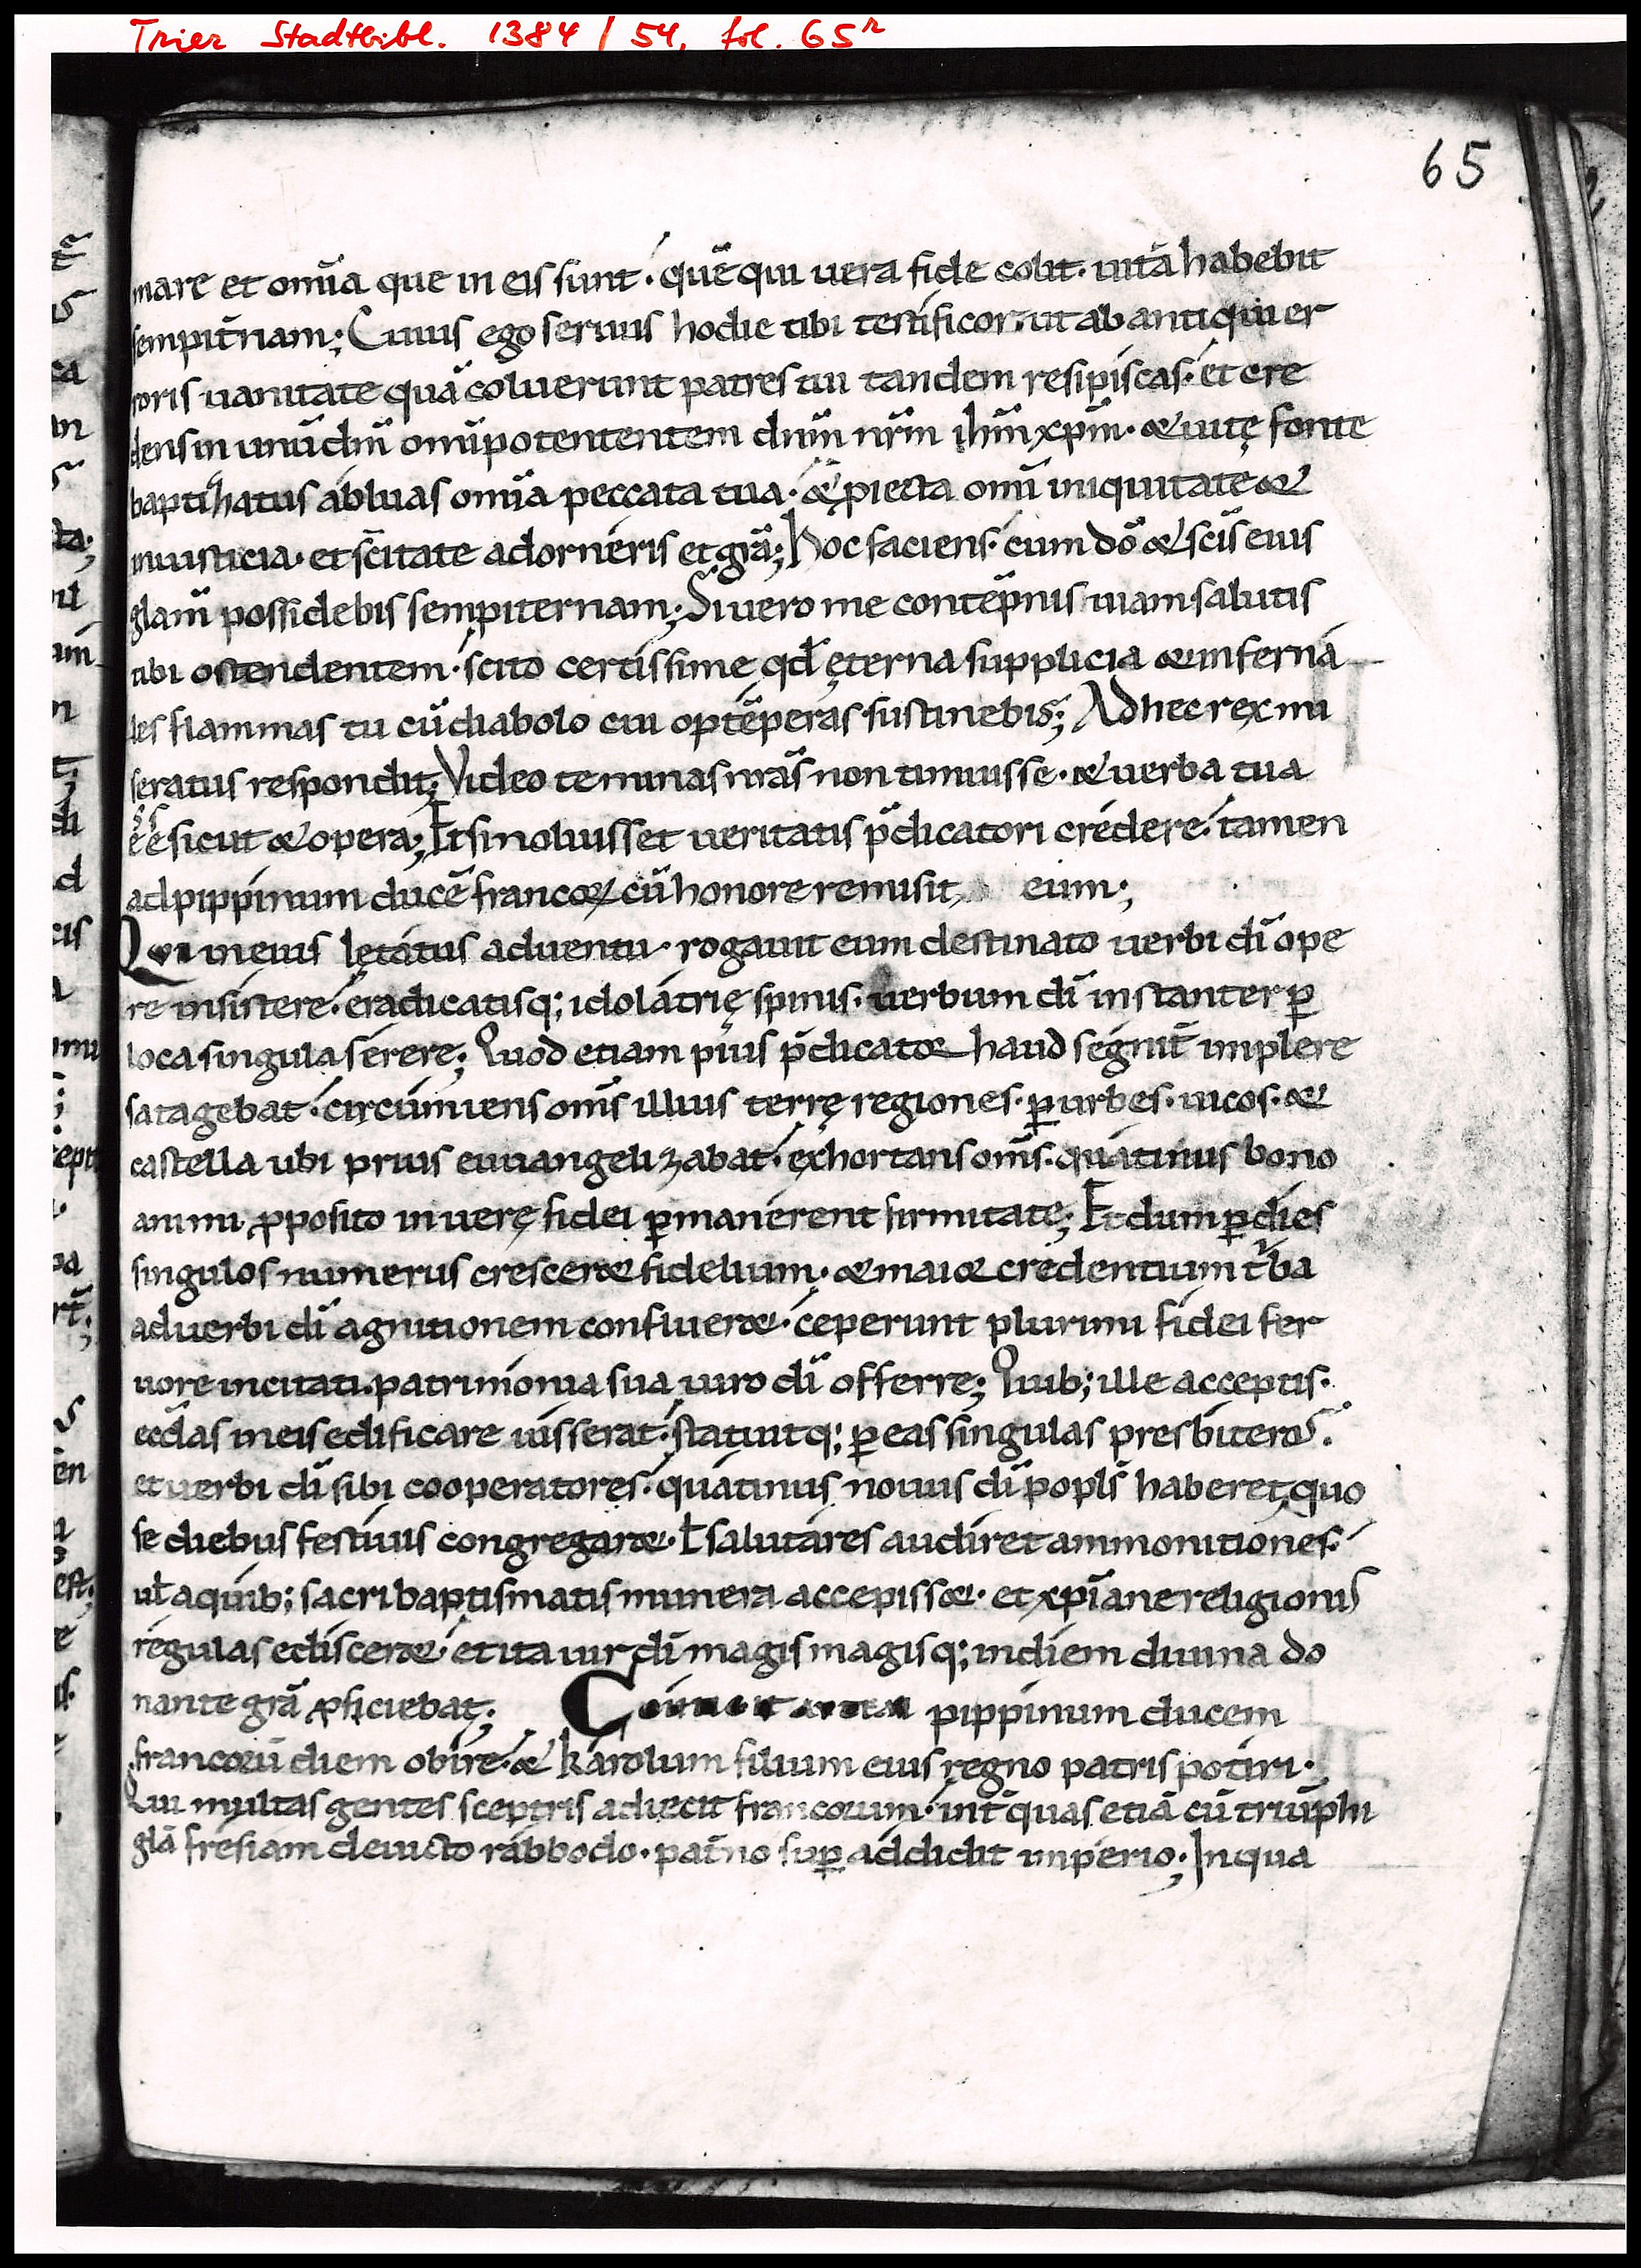 Trier Stadtbibl. 1384 / 54, fol. 65r
65
mare et om̄ia que in eis sunt· quē qui uera fide colit· uitā habebit
sempit̄nam; Cuius ego seruus hodie tibi testificor· ut ab antiqui er
roris uanitate quā coluerunt patres tui tandem resipiscas· et cre
dens in unū dm̄ omīpotententem dnm̄ nr̄m ihm̄ xpm̄· & uitę fonte
baptihatus abluas om̄ia peccata tua· & p̄iecta om̄i iniquitate &
iniusticia· et sc̄itate adorneris et grā; Hoc faciens· cum dō & scīs eius
glam̄ possidebis sempiternam; Si uero me contēpnis uiam salutis
tibi ostendentem· scito certissime qd̄ ęterna supplicia & inferna
les flammas tu cū diabolo cui optēperas sustinebis; Ad hec rex mi
seratus respondit; Video te minas nrās non timuisse· & uerba tua
ee sicut & opera; Et si noluisset ueritatis p̄dicatori credere· tamen
ad pippinum ducē francoꝝ cū honore remisit, eum;
Qui in eius lętatus aduentu· rogauit eum destinato uerbi dī ope
re insistere· eradicatisq; idolatrię spinis· uerbum dī instanter ꝑ
loca singula serere; Quod etiam pius p̄dicator haud segnit̄ implere
satagebat· circumiens om̄s illius terrę regiones· ꝑ urbes· uicos· &
castella ubi prius euuangelizabat· exhortans om̄s· quatinus bono
animi ꝓposito in uerę fidei ꝑmanerent firmitate; Et dum ꝑ dies
singulos numerus cresceret fidelium· & maior credentium t̄ba
ad uerbi dī agnitionem conflueret· ceperunt plurimi fidei fer
uore incitati· patrimonia sua uiro dī offerre; Quib; ille acceptis·
ecclas in eis edificare iusserat· statuitq; ꝑ eas singulas presbiteros·
et uerbi dī sibi cooperatores· quatinus nouus dī popls̄ haberet, quo
se diebus festiuis congregaret· ł salutares audiret ammonitiones·
uł a quib; sacri baptismatis munera accepisset· et xp̄iane religionis
regulas edisceret· et ita uir dī magis magisq; in diem diuina do
nante grā ꝓficiebat; pippinum ducem
francorū diem obire· & karolum filium eius regno patris potiri·
Qui multas gentes sceptris adiecit francorum· int̄ quas etiā cū triūphi
glā fresiam deuicto rabbodo· pat̄no suꝑ addidit imperio; In qua